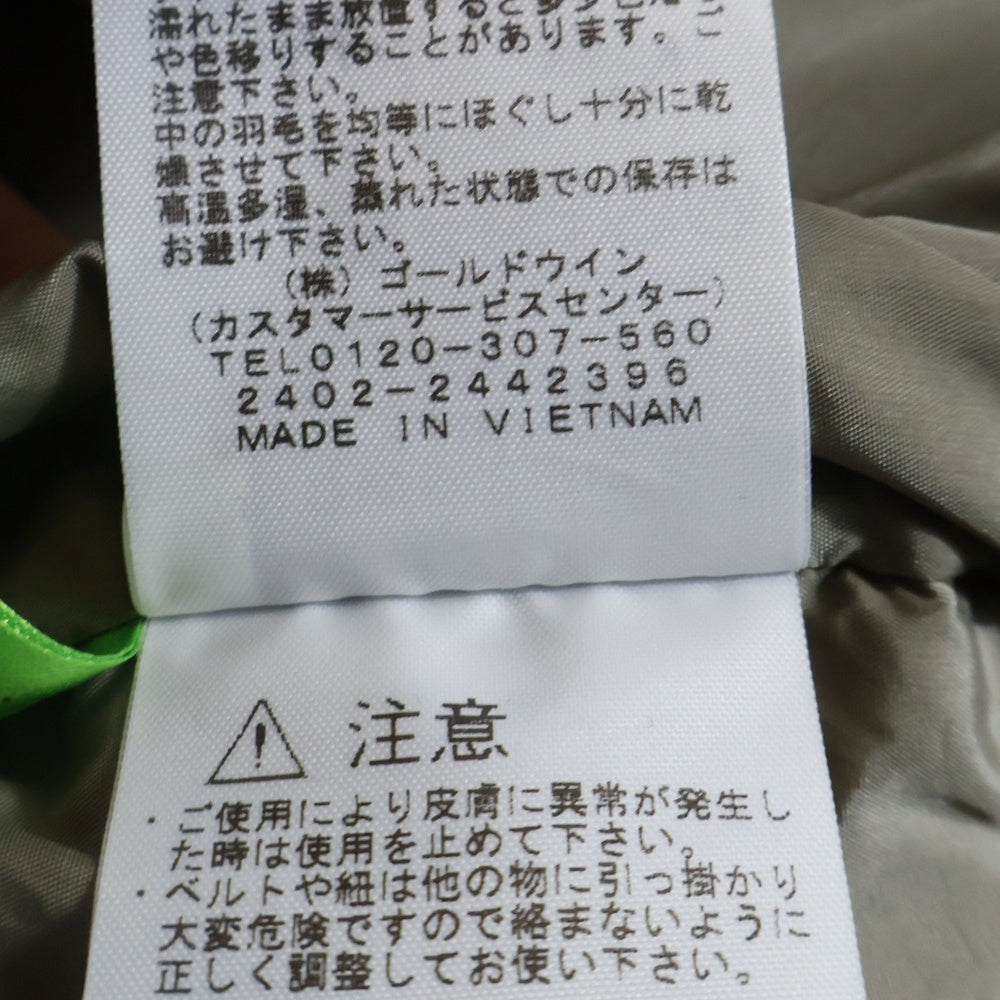 濡れたまま放置すると多少色落
や色移りすることがあります。ご
注意下さい。
中の羽毛を均等にほぐし十分に乾
燥させて下さい。
高温多湿、蒸れた状態での保存は
お避け下さい。
（株）ゴールドウイン
（カスタマーサービスセンター）
TEL0120-307-560
2402-2442396
MADE IN VIETNAM
注意
・ご使用により皮膚に異常が発生し
た時は使用を止めて下さい。
・ベルトや紐は他の物に引っ掛かり
大変危険ですので絡まないように
正しく調整してお使い下さい。